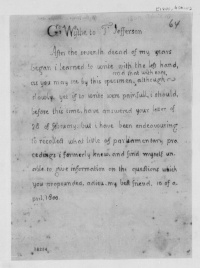 G. Wythe to T. Jefferson
64
After the seventh decad of my
began i learned to write with the left hand,
as you may see by this specimen, although
and that with ease,
slowly. yet if to write were painfull, i should,
before this time, have answered your letter of
28 of february, but i have been endeavouring
to recollect what little of parliamentary pro
cedings i formerly knew and find myself un
able to give information on the questions which
you propounded. adieu. my best friend. 10 of a
pril, 1800.